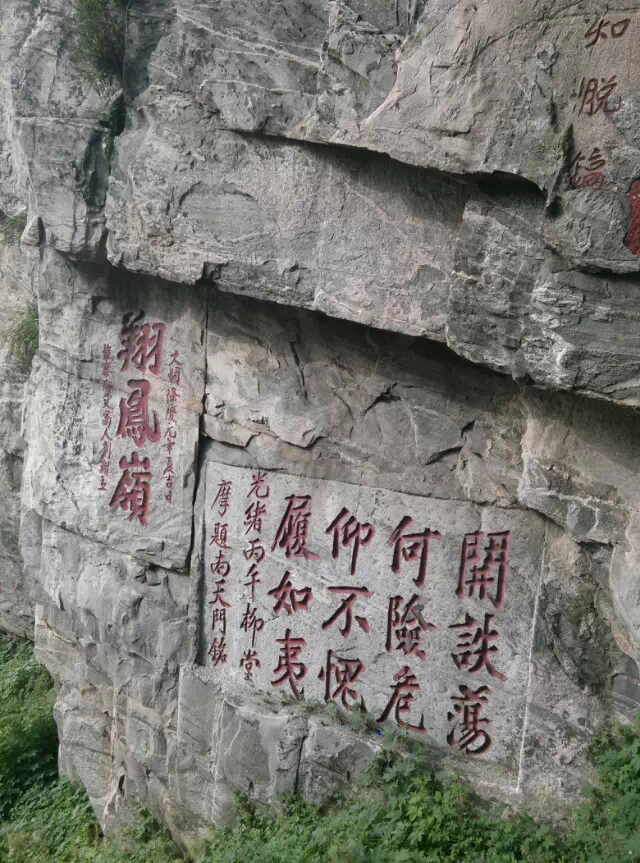 脫
開詄蕩
何險危
仰不愧
履如夷
光緒丙午柳堂
摩題南天門銘
大明隆慶元年夏吉日
翔鳳嶺